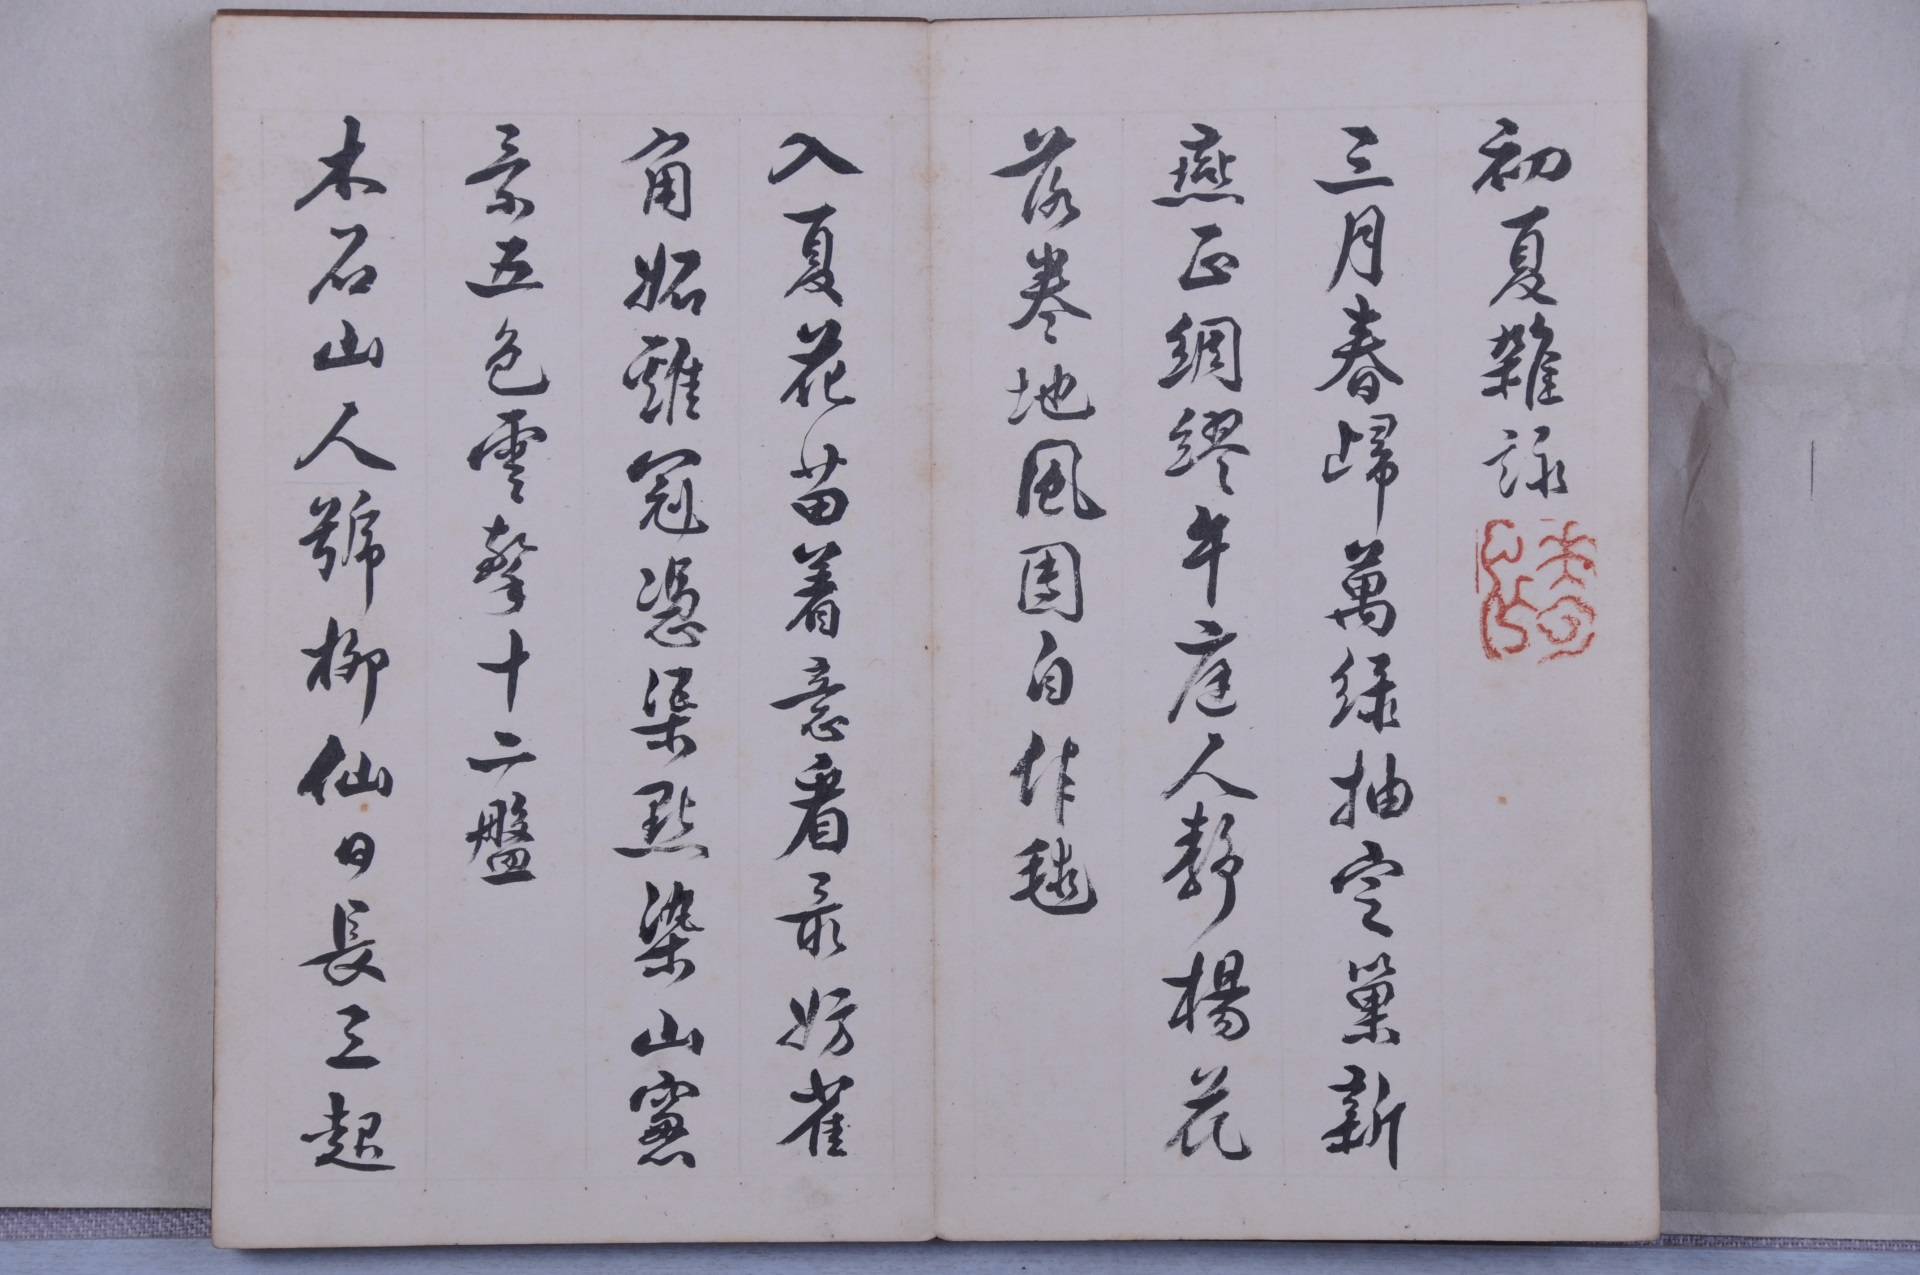 初夏雜詠
三月春歸萬綠抽空巢新
燕正綢繆午庭人靜楊花
落卷地風團自作毬
入夏花苗着意看最妨雀
角妬雞冠憑渠點染山窻
景五色雲擎十二盤
木石山人號柳仙日長三起